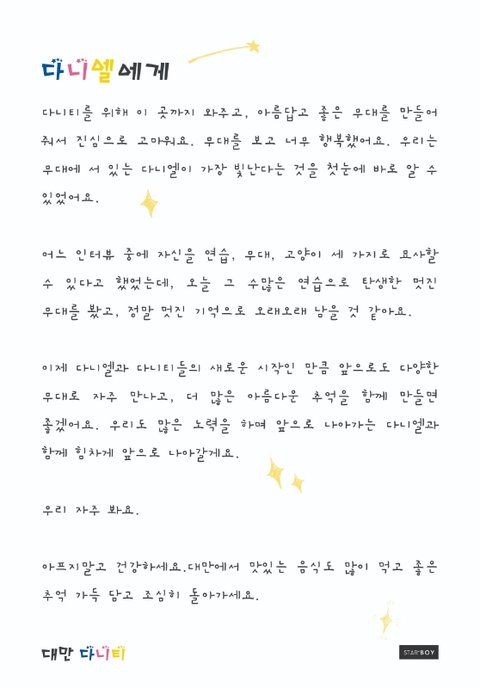 다니엘에게
다니티를 위해 이 곳까지 와주고, 아름답고 좋은 무대를 만들어
줘서 진심으로 고마워요. 무대를 보고 너무 행복했어요. 우리는
무대에 서 있는 다니엘이 가장 빛난다는 것을 첫눈에 바로 알 수
있었어요.
어느 인터뷰 중에 자신을 연습, 무대, 고양이 세 가지로 묘사할
수 있다고 했었는데, 오늘 그 수많은 연습으로 탄생한 멋진
무대를 봤고, 정말 멋진 기억으로 오래오래 남을 것 같아요.
이제 다니엘과 다니티들의 새로운 시작인 만큼 앞으로도 다양한
무대로 자주 만나고, 더 많은 아름다운 추억을 함께 만들면
좋겠어요. 우리도 많은 노력을 하며 앞으로 나아가는 다니엘과
함께 힘차게 앞으로 나아갈게요.
우리 자주 봐요.
아프지말고 건강하세요.대만에서 맛있는 음식도 많이 먹고 좋은
추억 가득 담고 조심히 돌아가세요.
대만 다니티
STAR*BOY